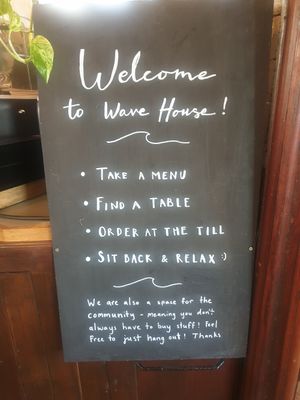 Welcome
to Wave House!
• TAKE A MENU
• FIND A TABLE
• ORDER AT THE TILL
• SIT BACK & RELAX :)
We are also a space for the
community - meaning you don't
always have to buy stuff! Feel
Free to just hang out! Thanks